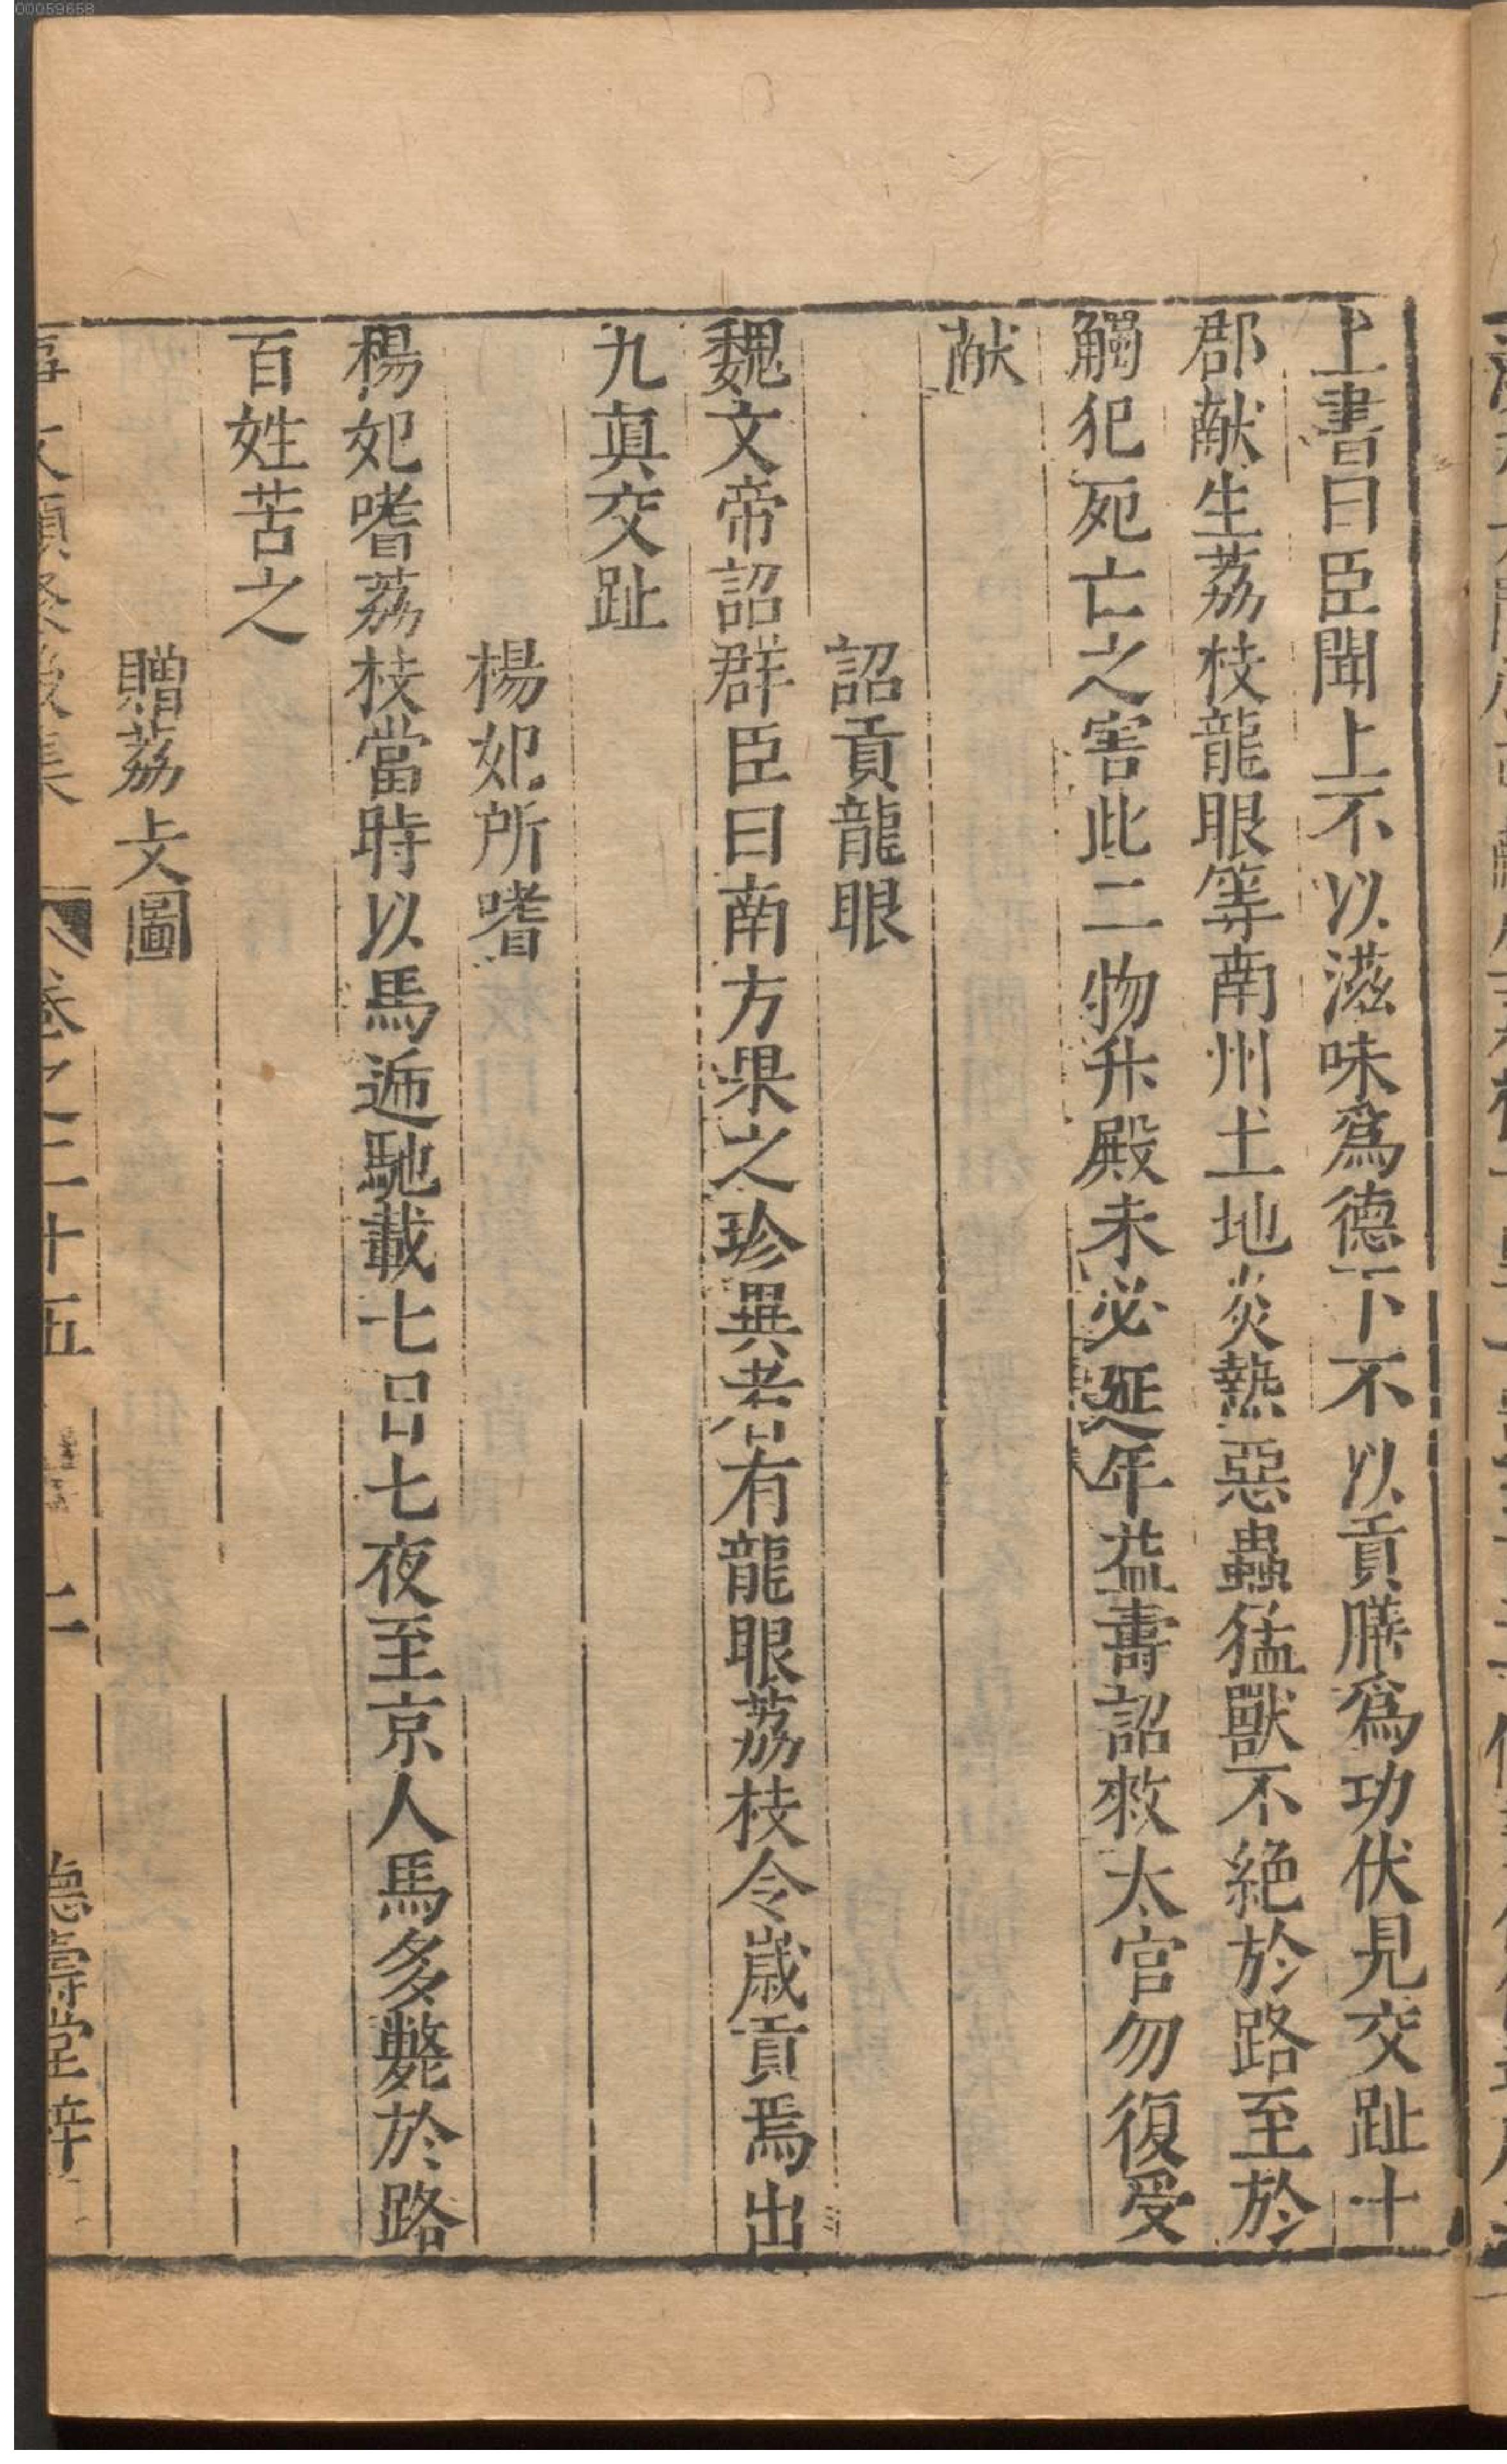 00059658
上書曰臣聞上不以滋味爲德下不以貢膳爲功伏見交趾十
郡献生荔枝龍眼等南州土地炎熱惡蟲猛獸不絶於路至於
觸犯死亡之害此二物升殿未必延年益壽詔敕太官勿復受
献
詔貢龍眼
魏文帝詔群臣曰南方果之珍異者有龍眼荔枝令歳貢焉出
九真交趾
楊妃所嗜
楊妃嗜荔枝當時以馬逓馳載七日七夜至京人馬多斃於路
百姓苦之
贈荔支圖
事文類聚後集 卷之二十五 二 德壽堂梓